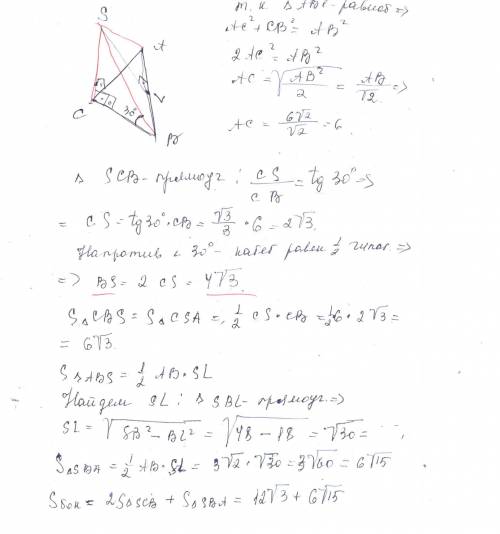 т. к △ ABC - равноб =>
AC² + CB² = AB²
2AC² = AB²
AC = √(AB²/2) = AB/√2 =>
AC = 6√2/√2 = 6
S
A
C
L
B
30°
△ SCB - прямоуг : CS/CB = tg 30° =>
= CS = tg 30° · CB = √3/3 · 6 = 2√3.
Напротив ∠ 30° - катет равен 1/2 гипот. =>
=> BS = 2 CS = 4√3.
S△CBS = S△CSA = 1/2 CS · CB = 1/2 6 · 2√3 =
= 6√3.
S△ABS = 1/2 AB · SL
Найдем SL : △ SBL - прямоуг. =>
SL = √(SB² - BL²) = √(48 - 18) = √30 =
S△SBA = 1/2 AB · SL = 3√2 · √30 = 3√60 = 6√15
Sбок = 2S△SCB + S△SBA = 12√3 + 6√15